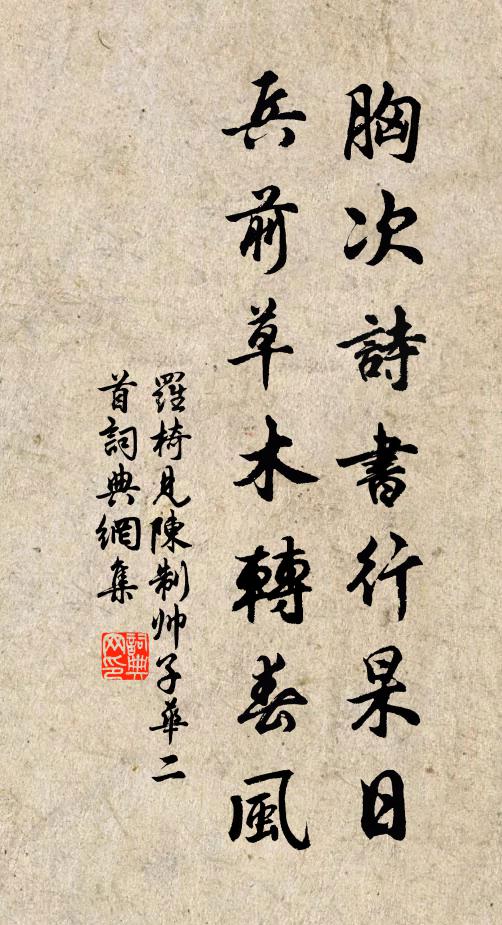 胸次詩書行杲日
兵前草木轉春風
羅椅見陳制帅子華二
首詞典網集
詞典
网印